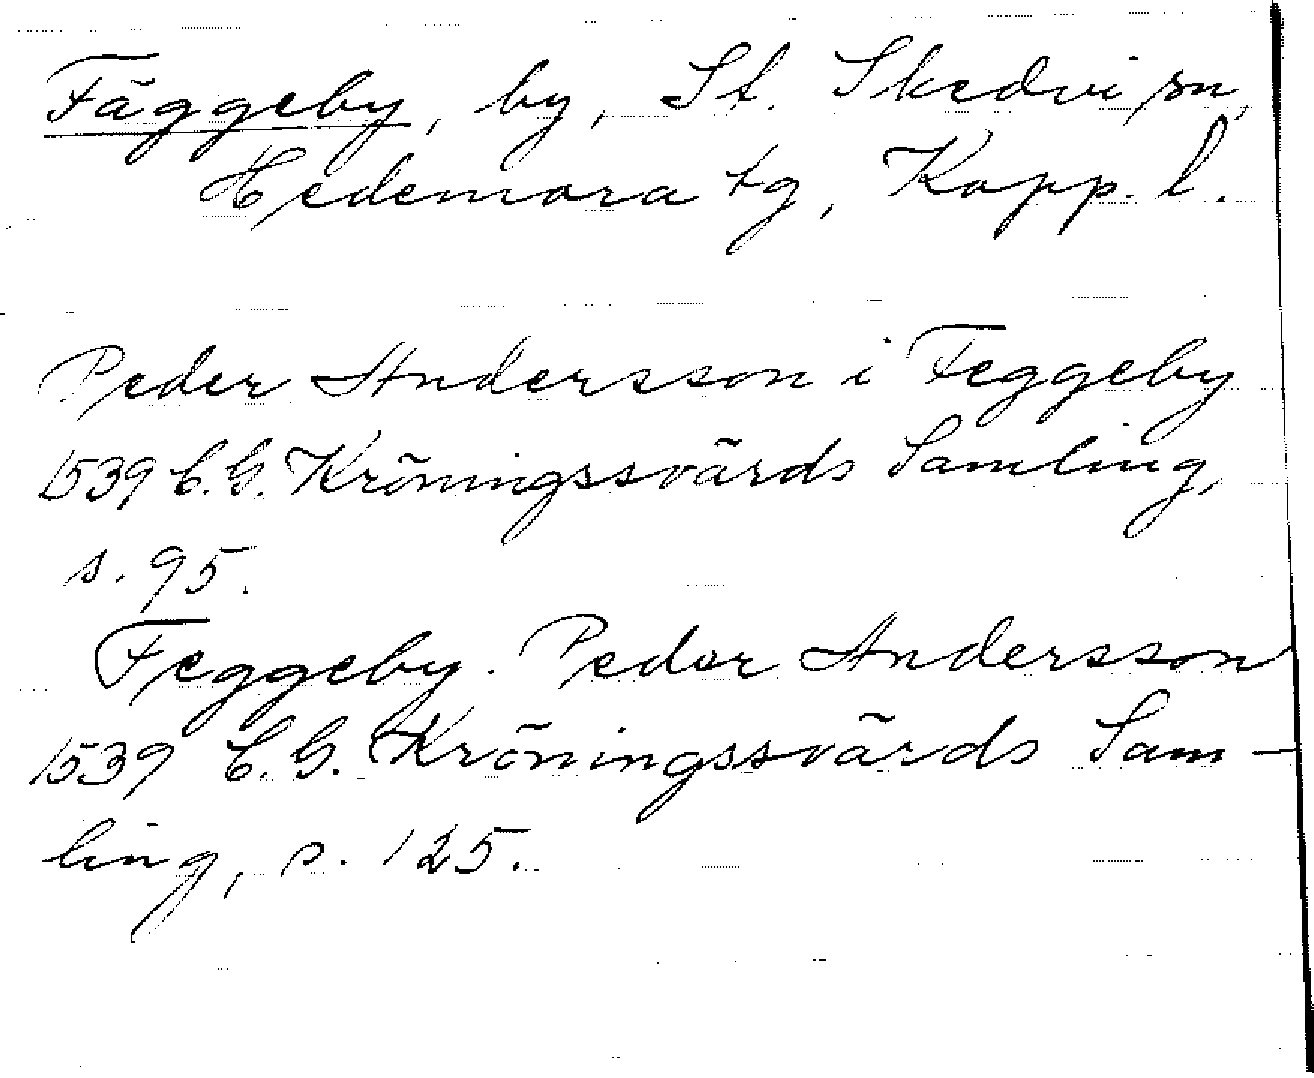 Fäggeby, by, St. Skedvi sn,
Hedemora tg, Kopp. l.
Peder Andersson i Feggeby
1539 C.G. Kröningssvärds Samling,
s. 95.
Feggeby. Peder Andersson
1539 C.G. Kröningssvärds Sam-
ling, s. 125.